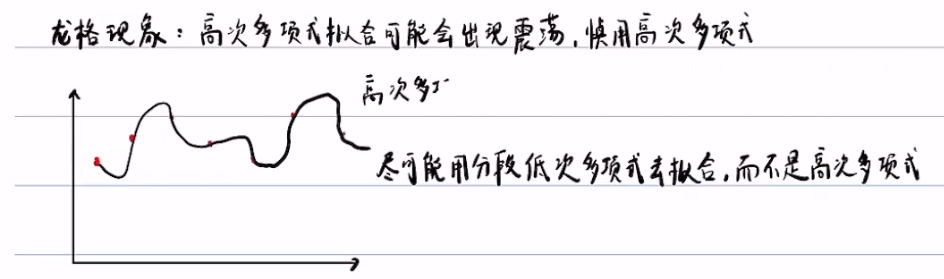 龙格现象：高次多项式拟合可能会出现震荡，慎用高次多项式
高次多
尽可能用分段低次多项式去拟合，而不是高次多项式